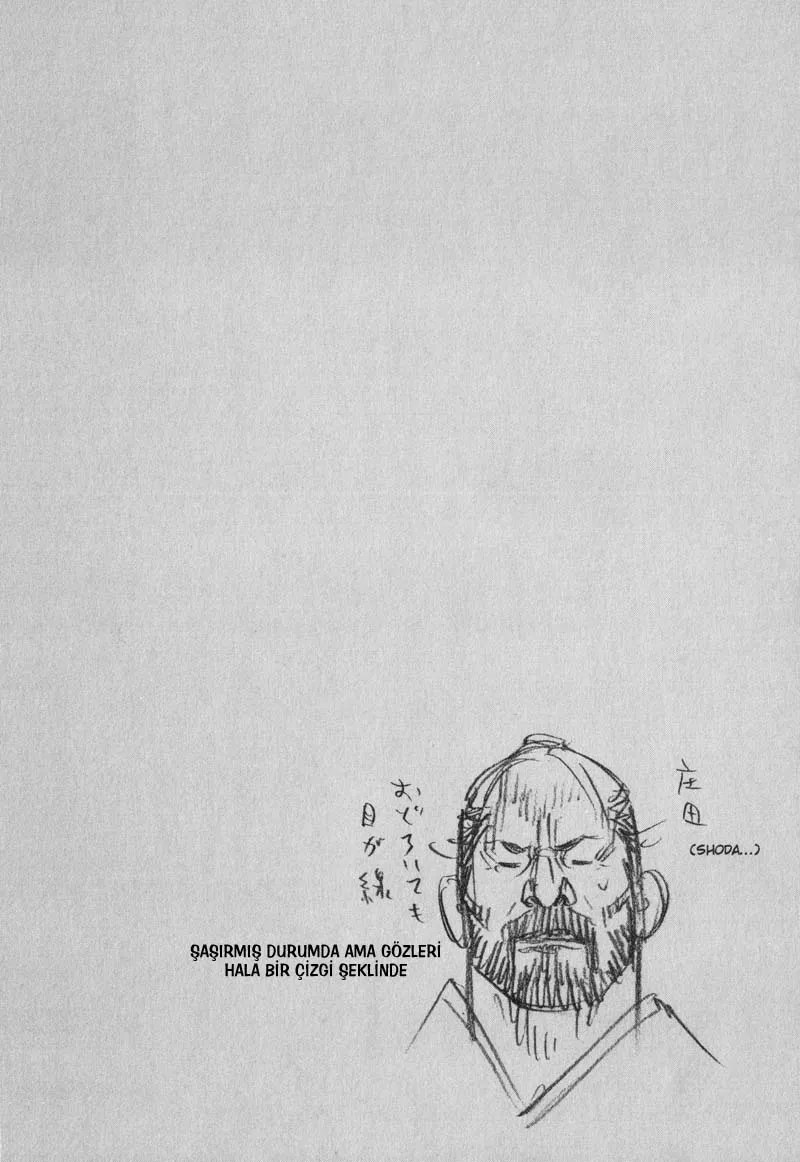 庄田
(SHODA...)
おどろいても
目が線
ŞAŞIRMIŞ DURUMDA AMA GÖZLERİ
HALA BİR ÇİZGİ ŞEKLİNDE